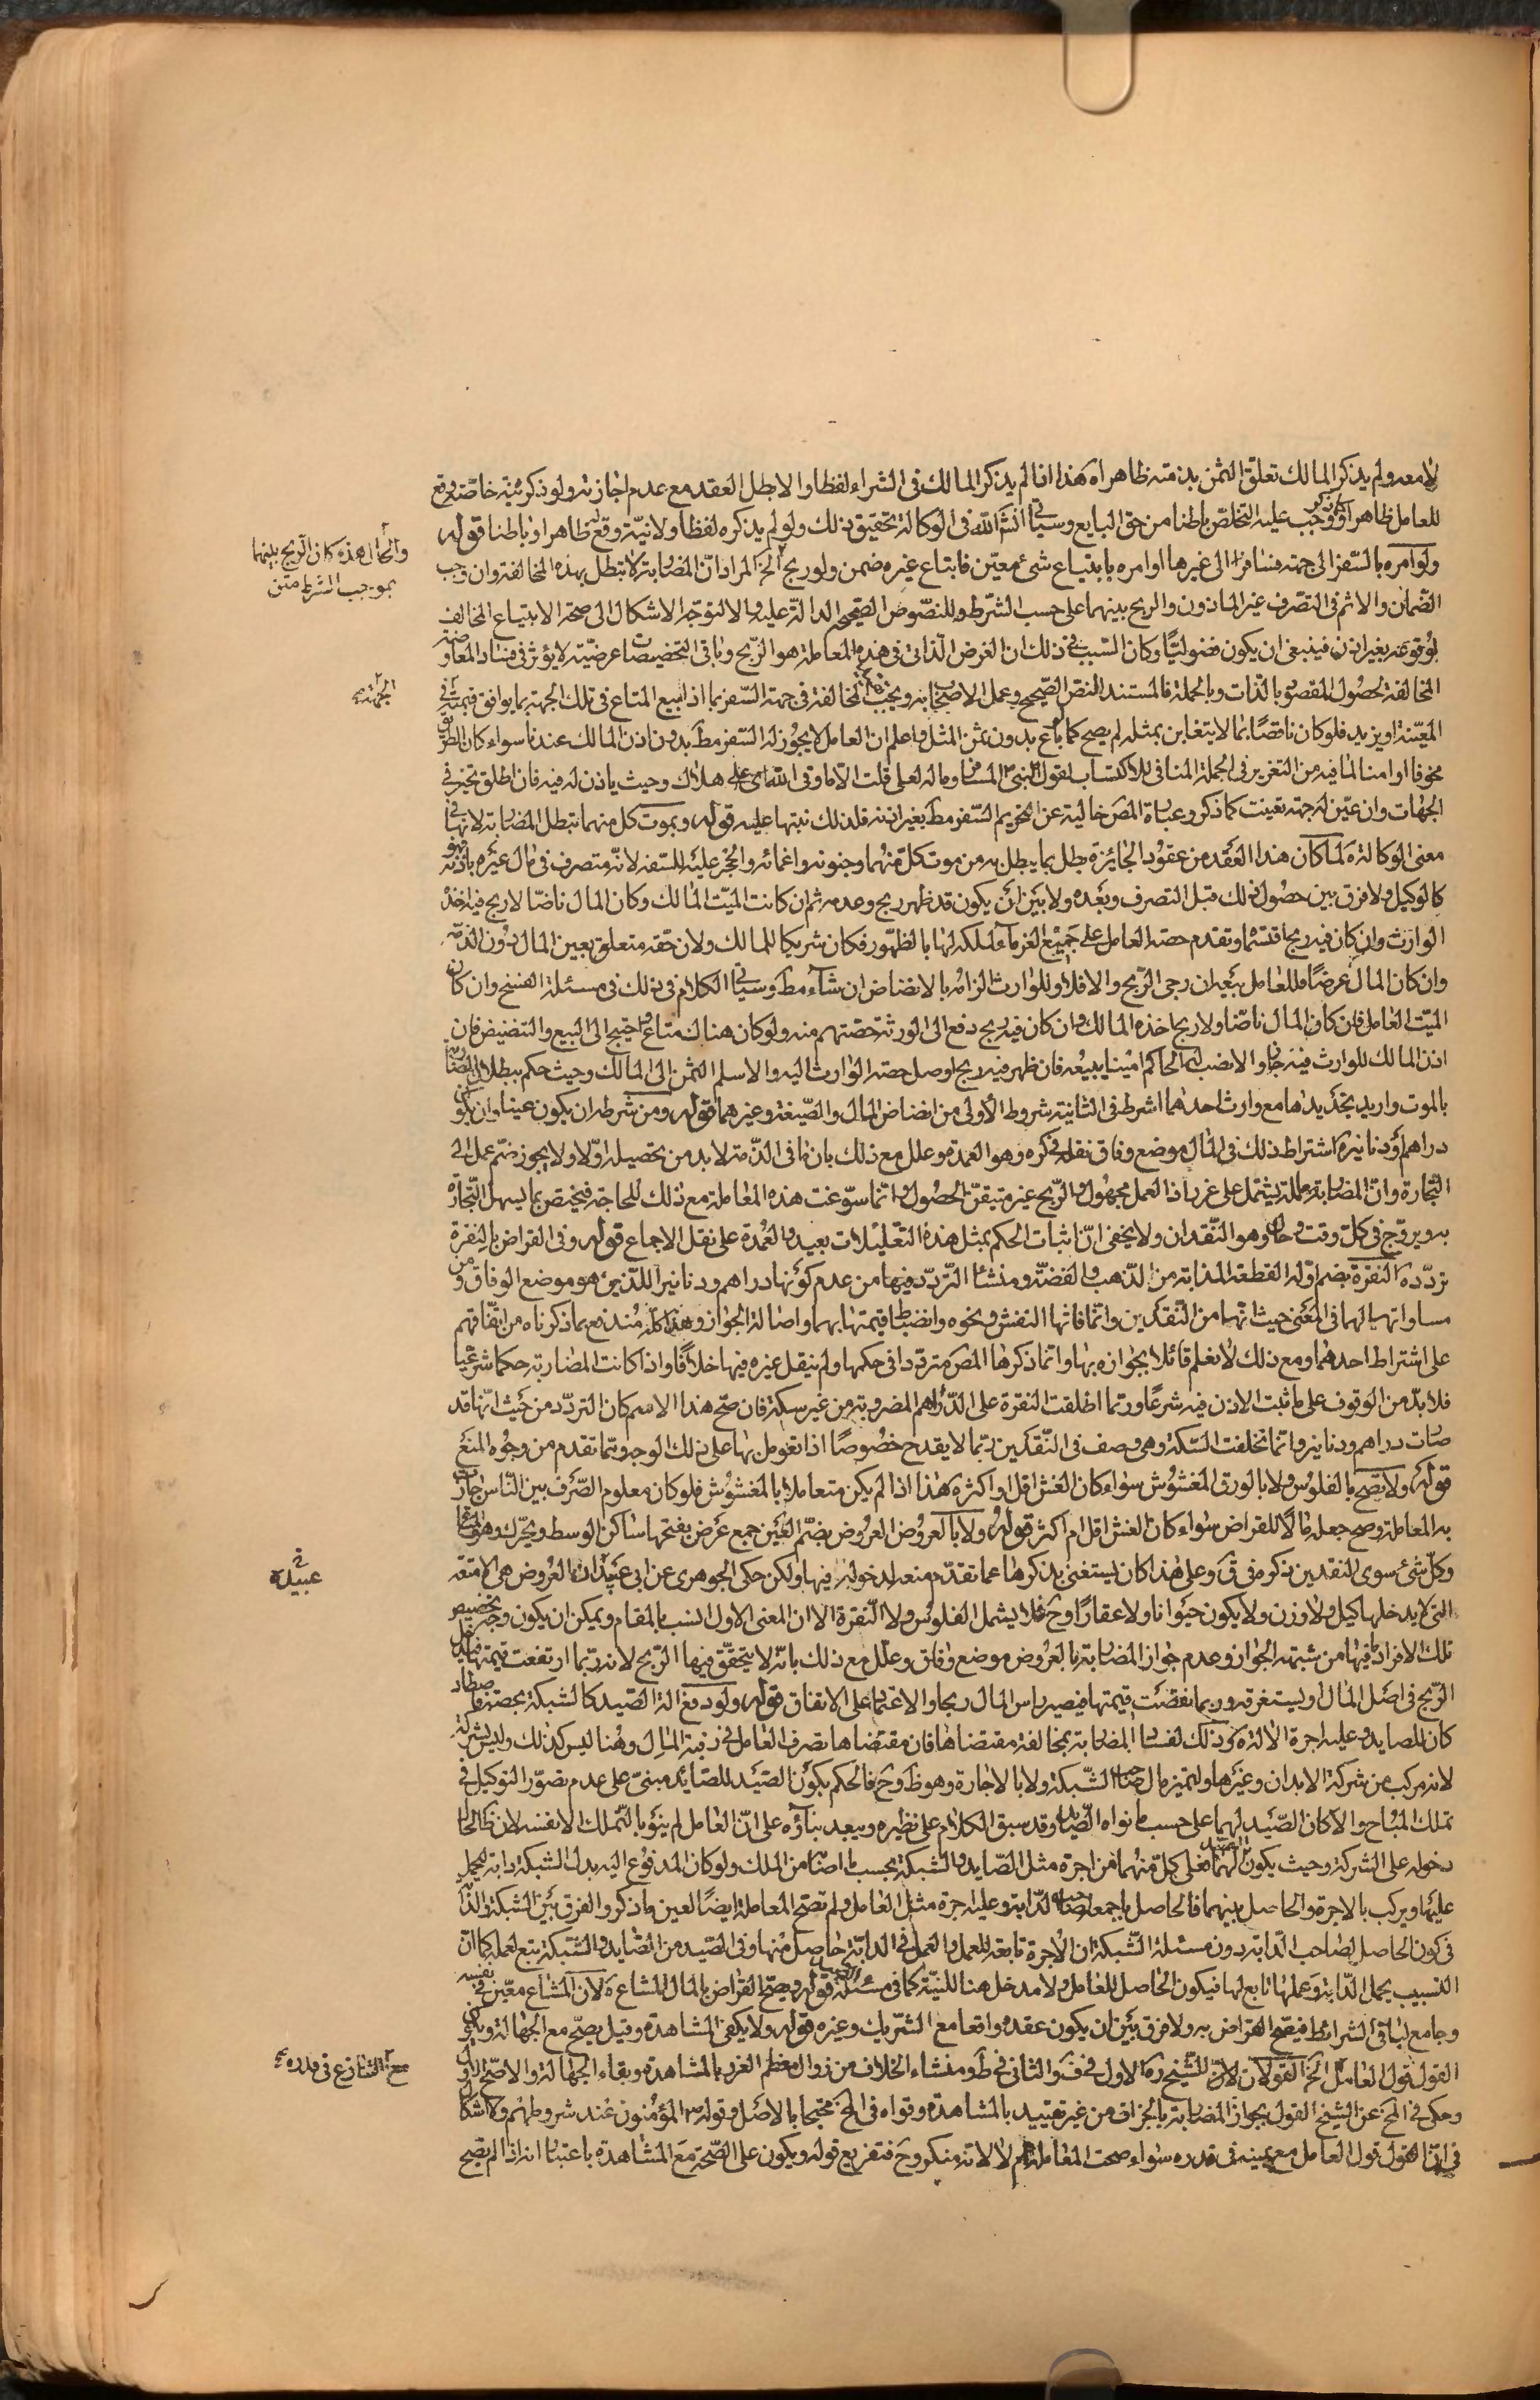 لا معه ولم يذكر المالك تعلق الثمن بذمته ظاهرا هذا اذا لم يذكر المالك فى الشراء لفظا والا بطل العقد مع عدم اجازته ولو ذكر نيته خاصة وقع
للعامل ظاهرا ووجب عليه التخلص باطنا من حق البايع وسياتى انشاء الله فى الوكالة تحقيق ذلك ولو لم يذكره لفظا ولا نية وقع له ظاهرا وباطنا قوله
ولو امره بالسفر الى جهة فسافر الى غيرها او امره بابتياع شئ معين فابتاع غيره ضمن ولو ربح الخ المراد ان المضاربة لا تبطل بهذه المخالفة وان وجب
والحال هذه كان الربح بينهما
بموجب الشرط متن
الضمان والاثم فى التصرف غير الماذون والربح بينهما على حسب الشرط للنصوص الصحيحة الدالة عليه والا لتوجه الاشكال الى صحة الابتياع المخالف
لوقوعه بغير اذن فينبغى ان يكون فضوليا وكان السبب فى ذلك ان الغرض الذاتى فى هذه المعاملة هو الربح وباقى التخصيصات عرضية لا يؤثر فى فساد المعاوضة
المخالفة لحصول المقصود بالذات وبالجملة فالمستند النص الصحيح وعمل الاصحاب به ويجب فى المخالفة فى جهة السفر بما اذا بيع المتاع فى تلك الجهة بما يوافق قيمته فى
الجهة
المعينة او يزيد فلو كان ناقصا بما لا يتغابن بمثله لم يصح كما لو باع بدون ثمن المثل واعلم ان العامل لا يجوز له السفر مط بدون اذن المالك عندنا سواء كان الطريق
مخوفا او امنا لما فيه من التغرير فى الجملة المنافى للاكتساب لقول النبى المسافر وماله لعلى قلت الا ما وقى الله اى على هلاك وحيث ياذن له فيه فان اطلق تخير فى
الجهات وان عين له جهة تعينت كما ذكر وعبارة المص خالية عن تحريم السفر مط بغير اذنه فلذلك نبهنا عليه قوله وبموت كل منهما تبطل المضاربة لانها فى
معنى الوكالة لما كان هذا العقد من عقود الجايزة بطل بما يبطل به من موت كل منهما وجنونه واغمائه والحجر عليه للسفه لانه متصرف فى مال غيره باذنه فهو
كالوكيل ولا فرق بين حصول ذلك قبل التصرف وبعده ولا بين ان يكون قد ظهر ربح وعدمه ثم ان كانت الميت المالك وكان المال ناضا لا ربح فيه اخذه
الوارث وان كان فيه ربح اقتسماه وتقدم حصة العامل على جميع الغرماء لملكه لها بالظهور فكان شريكا للمالك ولان حقه متعلق بعين المال دون الذمة
وان كان المال عرضا فللعامل بيعه ان رجى الربح والا فلا وللوارث الزامه بالانضاض ان شاء مط وسياتى الكلام فى ذلك فى مسئلة الفسخ وان كان
الميت العامل فان كان المال ناضا ولا ربح اخذه المالك وان كان فيه ربح دفع الى الورثة حصتهم منه ولو كان هناك متاع واحتيج الى البيع والتنضيض فان
اذن المالك للوارث فيه جاز والا نصب له الحاكم امينا يبيعه فان ظهر فيه ربح اوصل حصة الوارث اليه والا سلم الثمن الى المالك وحيث حكم ببطلان المضاربة
بالموت واريد تجديدها مع وارث احدهما اشترط فى الثانية شروط الاولى من انضاض المال والصيغة وغيرهما قوله ومن شرطه ان يكون عينا وان يكون
دراهم او دنانير ه اشتراط ذلك فى المال موضع وفاق نقله فى كره وهو العمدة وعلل مع ذلك بان ما فى الذمة لا بد من تحصيله اولا ولا يجوز ضم عمل الى
التجارة وان المضاربة معاملة يشتمل على غرر اذ العمل مجهول والربح غير متيقن الحصول وانما سوغت هذه المعاملة مع ذلك للحاجة فيختص بما يسهل التجارة
به ويروج فى كل وقت وحال وهو النقدان ولا يخفى ان اثبات الحكم بمثل هذه التعليلات بعيد والعمدة على نقل الاجماع قوله وفى القراض بالنقرة
تردد ه النقرة بضم اوله القطعة المذابة من الذهب والفضة ومنشا التردد فيها من عدم كونها دراهم ودنانير اللذين هو موضع الوفاق ومن
مساواتها لهما فى المعنى حيث انها من النقدين وانما فاتها النقش ونحوه وانضباط قيمتها بهما واصالة الجواز وهذا كله مندفع بما ذكرناه من اتفاقهم
على اشتراط احدهما ومع ذلك لا نعلم قائلا بجوازه بها وانما ذكرها المص مترددا فى حكمها ولم ينقل غيره فيها خلافا واذا كانت المضاربة حكما شرعيا
فلا بد من الوقوف على ما ثبت الاذن فيه شرعا وربما اطلقت النقرة على الدراهم المضروبة من غير سكة فان صح هذا الاسم كان التردد من حيث انها قد
صارت دراهم ودنانير وانما تخلفت السكة وهى وصف فى النقدين ربما لا يقدح خصوصا اذا تعومل بها على ذلك الوجه ومما تقدم من وجوه المنع
قوله ولا تصح بالفلوس ولا بالورق المغشوش سواء كان الغش اقل او اكثر ه هذا اذا لم يكن متعاملا بالمغشوش فلو كان معلوم الصرف بين الناس جازت
به المعاملة وصح جعله مالا للقراض سواء كان الغش اقل ام اكثر قوله ولا بالعروض العروض بضم العين جمع عرض بفتحها ساكن الوسط ويحرك وهو المتاع
وكل شئ سوى النقدين ذكره فى ق وعلى هذا كان يستغنى بذكرها عما تقدم منعه لدخوله فيها ولكن حكى الجوهرى عن ابى عبيد ان العروض هى الامتعة
عبيدة
التى لا يدخلها كيل ولا وزن ولا يكون حيوانا ولا عقارا وح فلا يشمل الفلوس ولا النقرة الا ان المعنى الاول انسب بالمقام ويمكن ان يكون وجه تخصيص
تلك الافراد ما فيها من شبهة الجواز وعدم جواز المضاربة بالعروض موضع وفاق وعلل مع ذلك بانه لا يتحقق فيها الربح لانه ربما ارتفعت قيمتها فيدخل
الربح فى اصل المال او يستغرقه وربما نقصت قيمتها فيصير راس المال ربحا والاعتماد على الاتفاق قوله ولو دفع الة الصيد كالشبكة بحصة فاصطاد
كان للصايد وعليه اجرة الالة ه وذلك لفساد المضاربة بمخالفة مقتضاها فان مقتضاها تصرف العامل فى رقبة المال وهنا ليس كذلك وليس بشركة
لانه مركب من شركة الابدان وغيرها ولتميز مال صاحب الشبكة ولا بالاجارة وهو ظ وح فالحكم بكون الصيد للصايد مبنى على عدم تصور التوكيل فى
تملك المباح والا كان الصيد لهما على حسب ما نواه الصايد وقد سبق الكلام على نظيره ويبعد بناؤه على ان العامل لم ينو بالتملك الا نفسه لان ظ الحال
دخوله على الشركة وحيث يكون الصيد لهما فعلى كل منهما من اجرة مثل الصايد والشبكة بحسب ما اصابه من الملك ولو كان المدفوع اليه بدل الشبكة دابة ليحمل
عليها ويركب بالاجرة والحاصل بينهما فالحاصل باجمعه لصاحب الدابة وعليه اجرة مثل العامل ولم تصح المعاملة ايضا لعين ما ذكر والفرق بين الشبكة والدابة
فى كون الحاصل لصاحب الدابة دون مسئلة الشبكة ان الاجرة تابعة للعمل والعمل فى الدابة حاصل منها وفى الصيد من الصايد والشبكة تبع لعمله كما ان
التسبيب بحمل الدابة وعملها تابع لها فيكون الحاصل للعامل ولا مدخل هنا للنية كما فى مسئلة الصيد قوله ويصح القراض بالمال المشاع ه لان المشاع معين فى نفسه
وجامع لباقى الشرائط فيصح القراض به ولا فرق بين ان يكون عقده واقعا مع الشريك وغيره قوله ولا يكفى المشاهدة وقيل يصح مع الجهالة ويكون
القول قول العامل الخ القولان للشيخ ره الاول فى ف والثانى فى ط ومنشاء الخلاف من زوال معظم الغرر بالمشاهدة وبقاء الجهالة والاصح الاول
مع التنازع فى قدره
وحكى فى المخ عن الشيخ القول بجواز المضاربة بالجزاف من غير تقييد بالمشاهدة وقواه فى المخ محتجا بالاصل وقوله المؤمنون عند شروطهم ولا اشكال
فى ان القول قول العامل مع يمينه فى قدره سواء صحت المعاملة ام لا لانه منكر وح فتفريع قوله ويكون على الصحة مع المشاهدة باعتبار انه اذا لم تصح